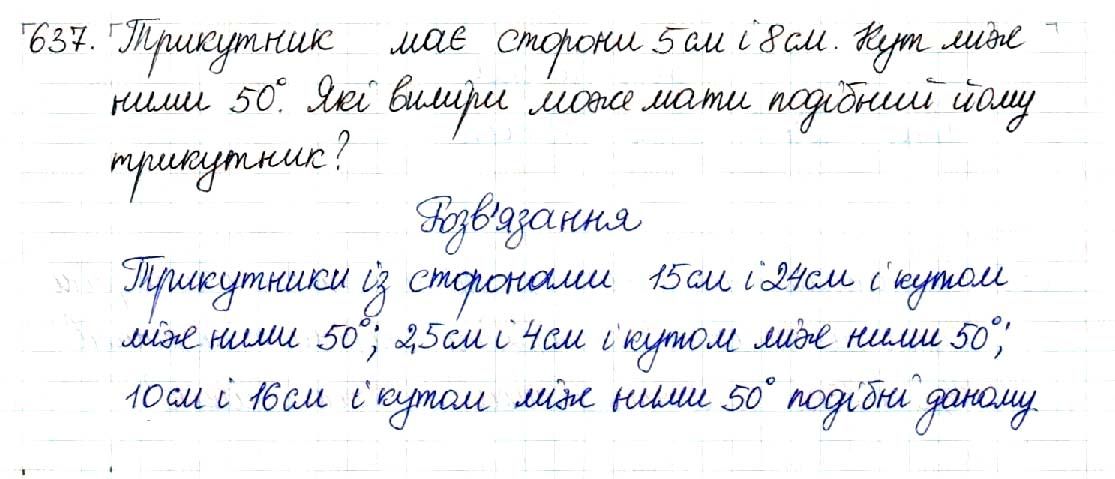 637. Трикутник має сторони 5см і 8см. Кут між
ними 50°. Які виміри може мати подібний йому
трикутник?
Розв'язання
Трикутники із сторонами 15см і 24см і кутом
між ними 50°; 2,5см і 4см і кутом між ними 50°;
10см і 16см і кутом між ними 50° подібні даному.